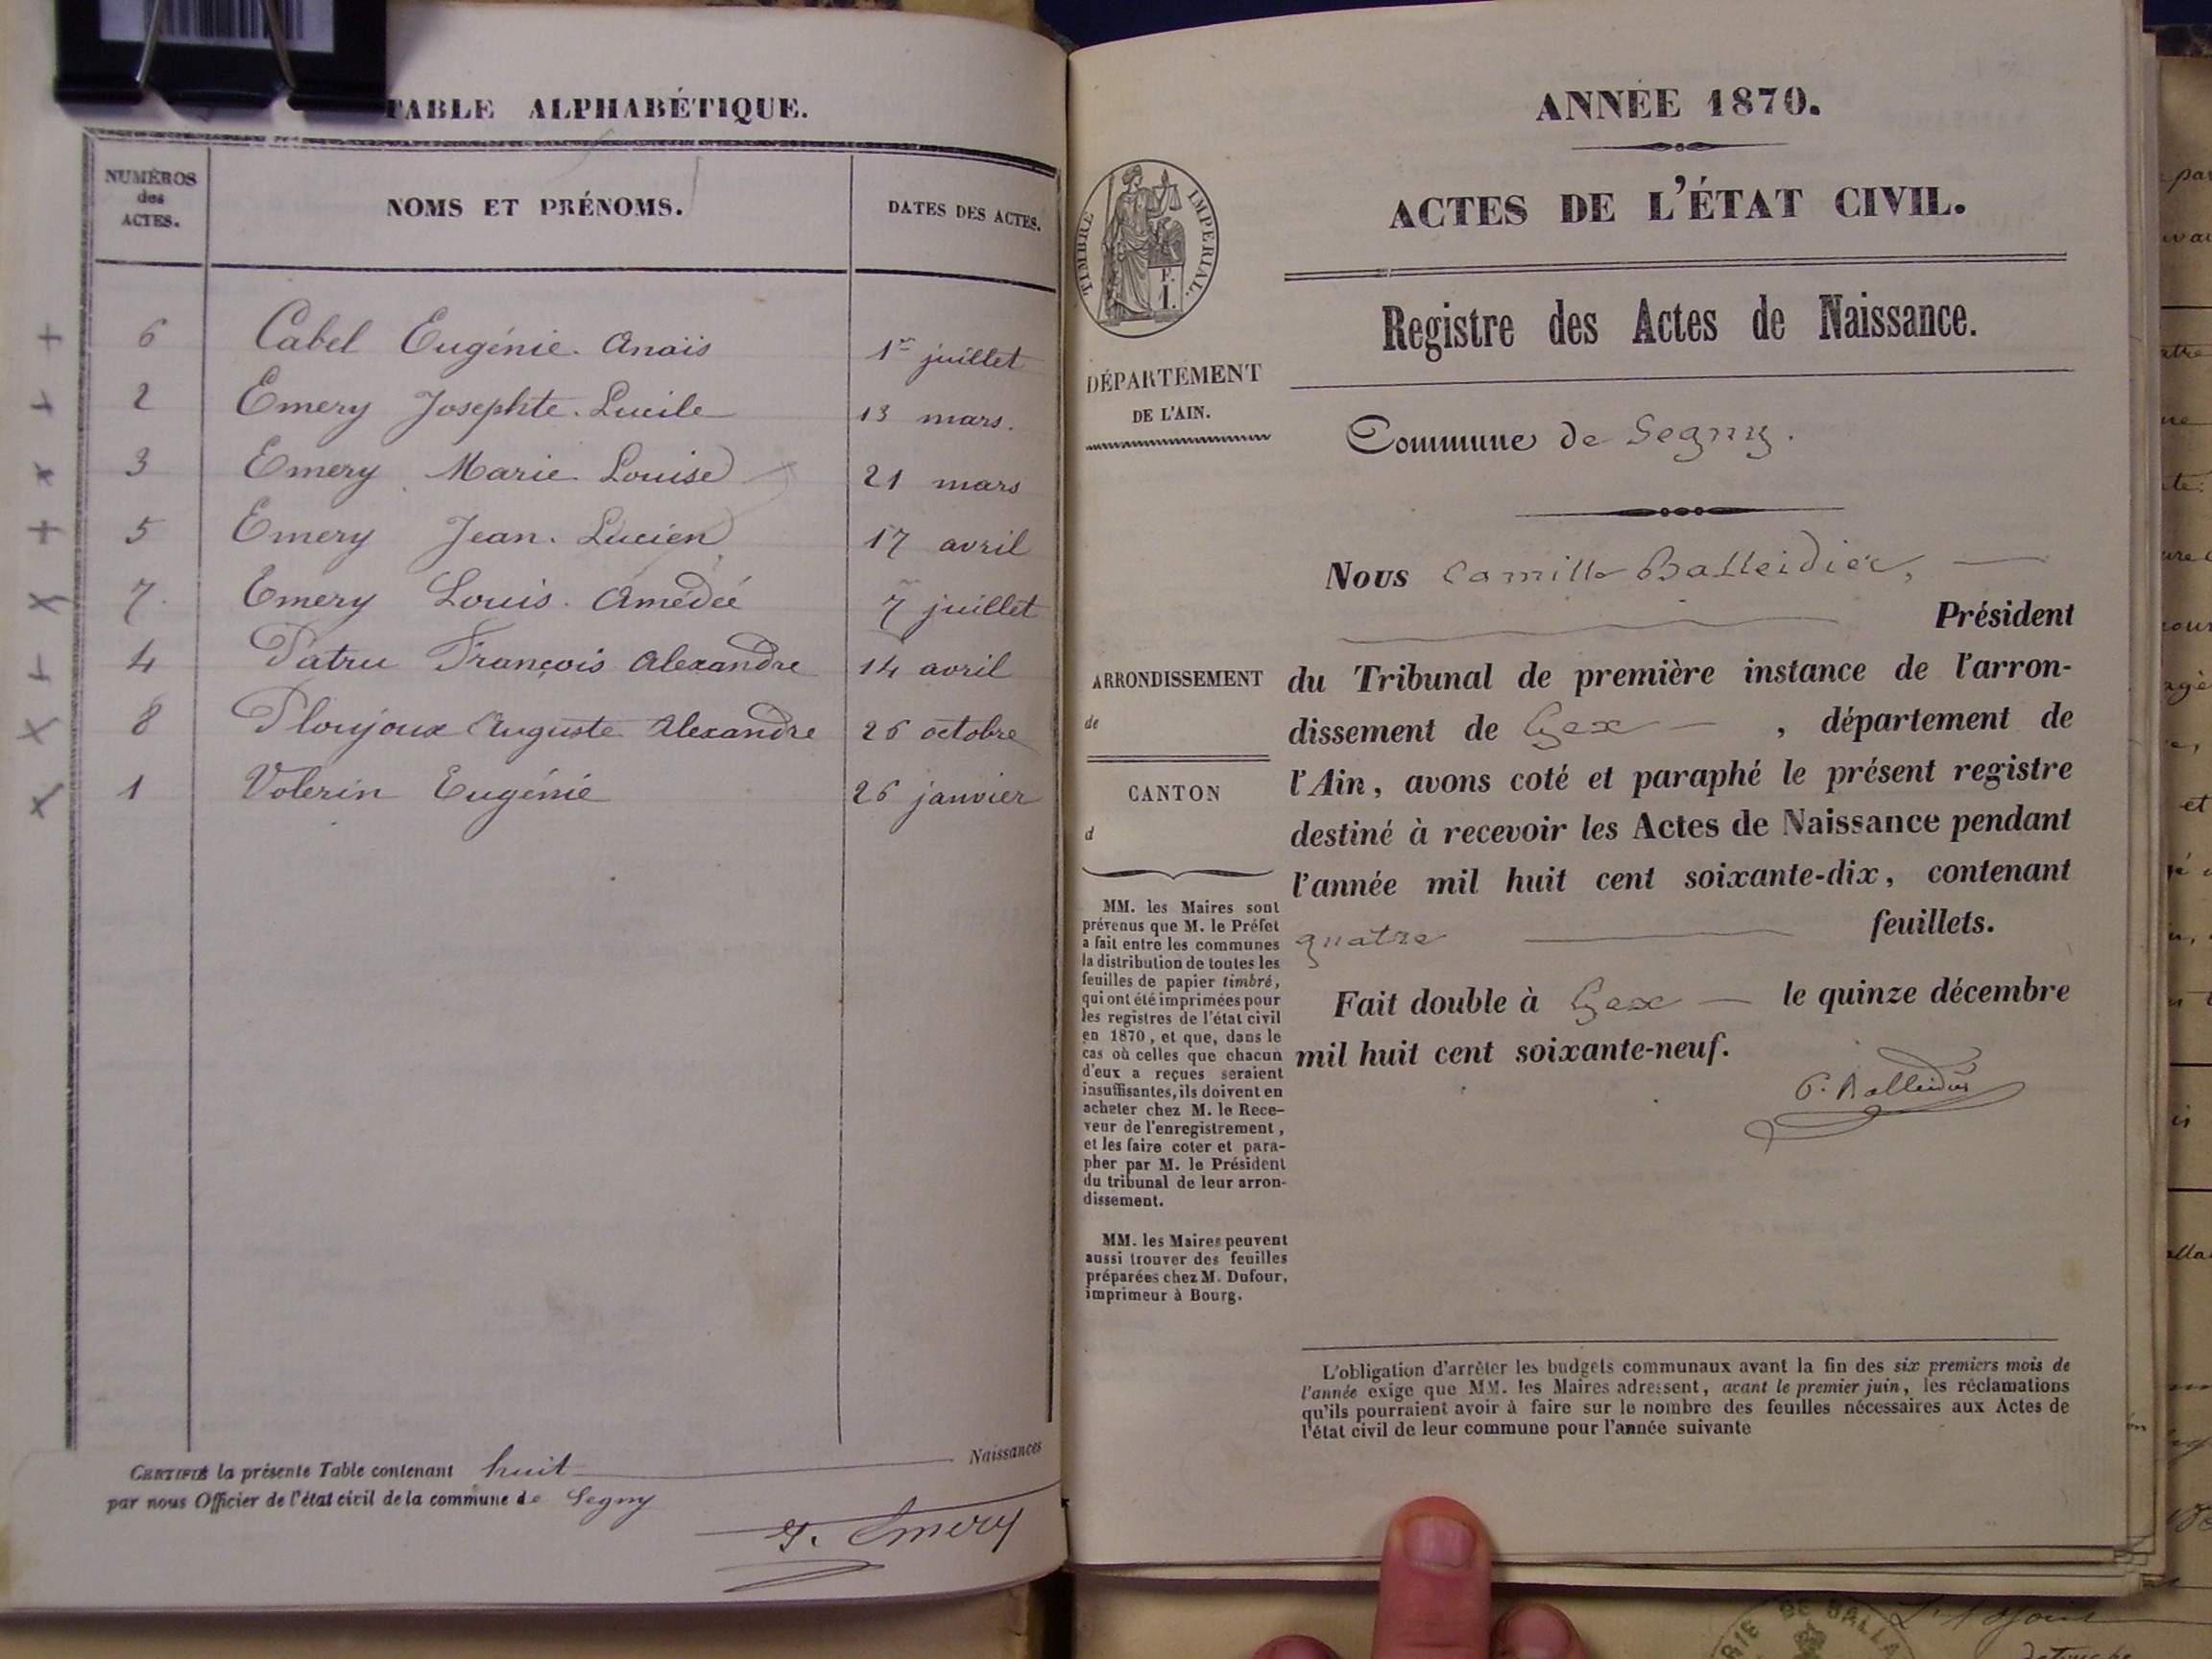 TABLE ALPHABÉTIQUE.
NUMÉROS
des
ACTES.
NOMS ET PRÉNOMS.
DATES DES ACTES.
6 Cabel Eugénie Anaïs 1er juillet
2 Emery Josephte Lucile 13 mars.
3 Emery Marie Louise 21 mars
5 Emery Jean Lucien 17 avril
7 Emery Louis Amédée 7 juillet
4 Patru François Alexandre 14 avril
8 Ploujoux Auguste Alexandre 26 octobre
1 Volerin Eugénie 26 janvier
CERTIFIÉ la présente Table contenant huit Naissances
par nous Officier de l'état civil de la commune de Segny
Emery
ANNÉE 1870.
ACTES DE L'ÉTAT CIVIL.
TIMBRE IMPERIAL.
Registre des Actes de Naissance.
DÉPARTEMENT
DE L'AIN.
Commune de Segny.
Nous Camille Balleidier,
Président
ARRONDISSEMENT
de
CANTON
d
du Tribunal de première instance de l'arron-
dissement de Gex, département de
l'Ain, avons coté et paraphé le présent registre
destiné à recevoir les Actes de Naissance pendant
l'année mil huit cent soixante-dix, contenant
quatre feuillets.
Fait double à Gex le quinze décembre
mil huit cent soixante-neuf.
C. Balleidier
MM. les Maires sont
prévenus que M. le Préfet
a fait entre les communes
la distribution de toutes les
feuilles de papier timbré,
qui ont été imprimées pour
les registres de l'état civil
en 1870, et que, dans le
cas où celles que chacun
d'eux a reçues seraient
insuffisantes, ils doivent en
acheter chez M. le Rece-
veur de l'enregistrement,
et les faire coter et para-
pher par M. le Président
du tribunal de leur arron-
dissement.
MM. les Maires peuvent
aussi trouver des feuilles
préparées chez M. Dufour,
imprimeur à Bourg.
L'obligation d'arrêter les budgets communaux avant la fin des six premiers mois de
l'année exige que MM. les Maires adressent, avant le premier juin, les réclamations
qu'ils pourraient avoir à faire sur le nombre des feuilles nécessaires aux Actes de
l'état civil de leur commune pour l'année suivante